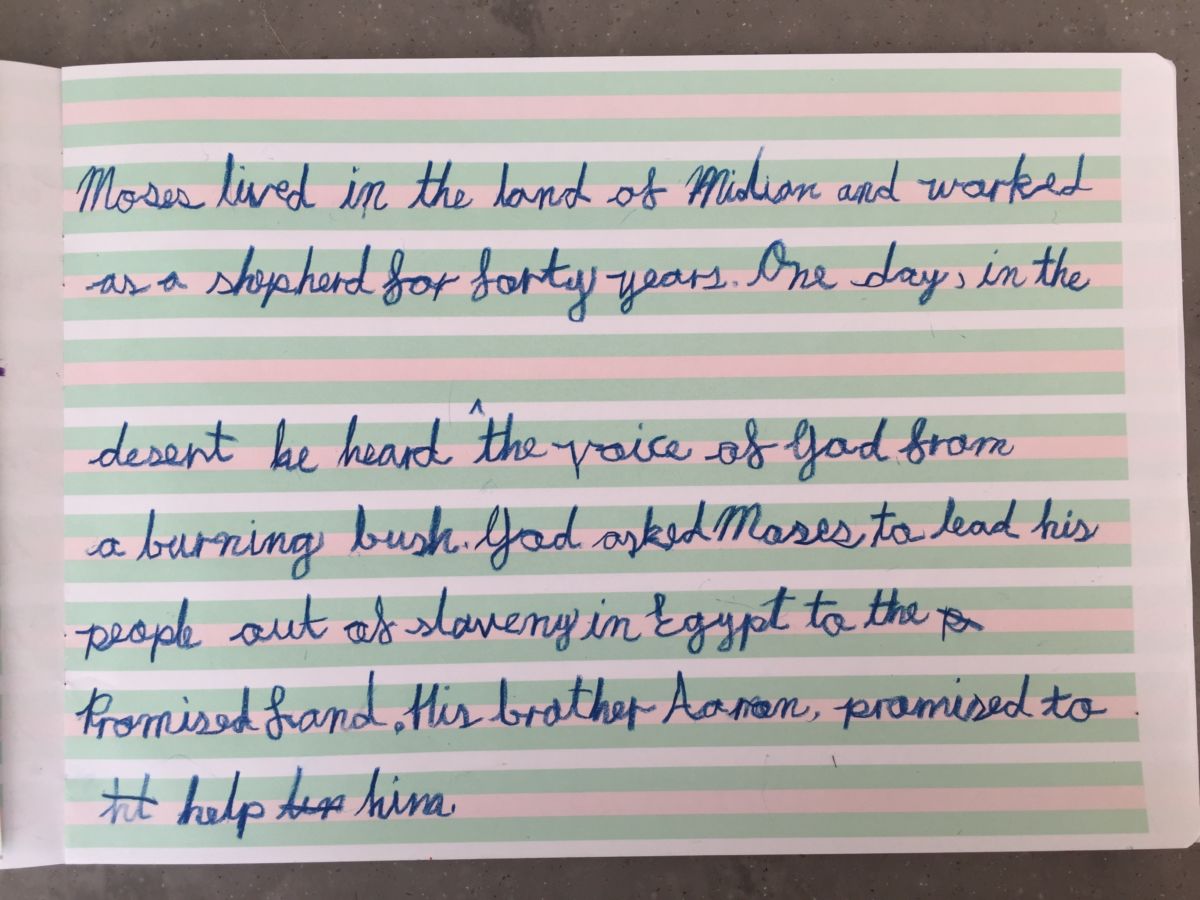 Moses lived in the land of Midian and worked
as a shepherd for forty years. One day, in the
desert he heard the voice of God from
a burning bush. God asked Moses to lead his
people out of slavery in Egypt to the
Promised Land. His brother Aaron, promised to
help him.